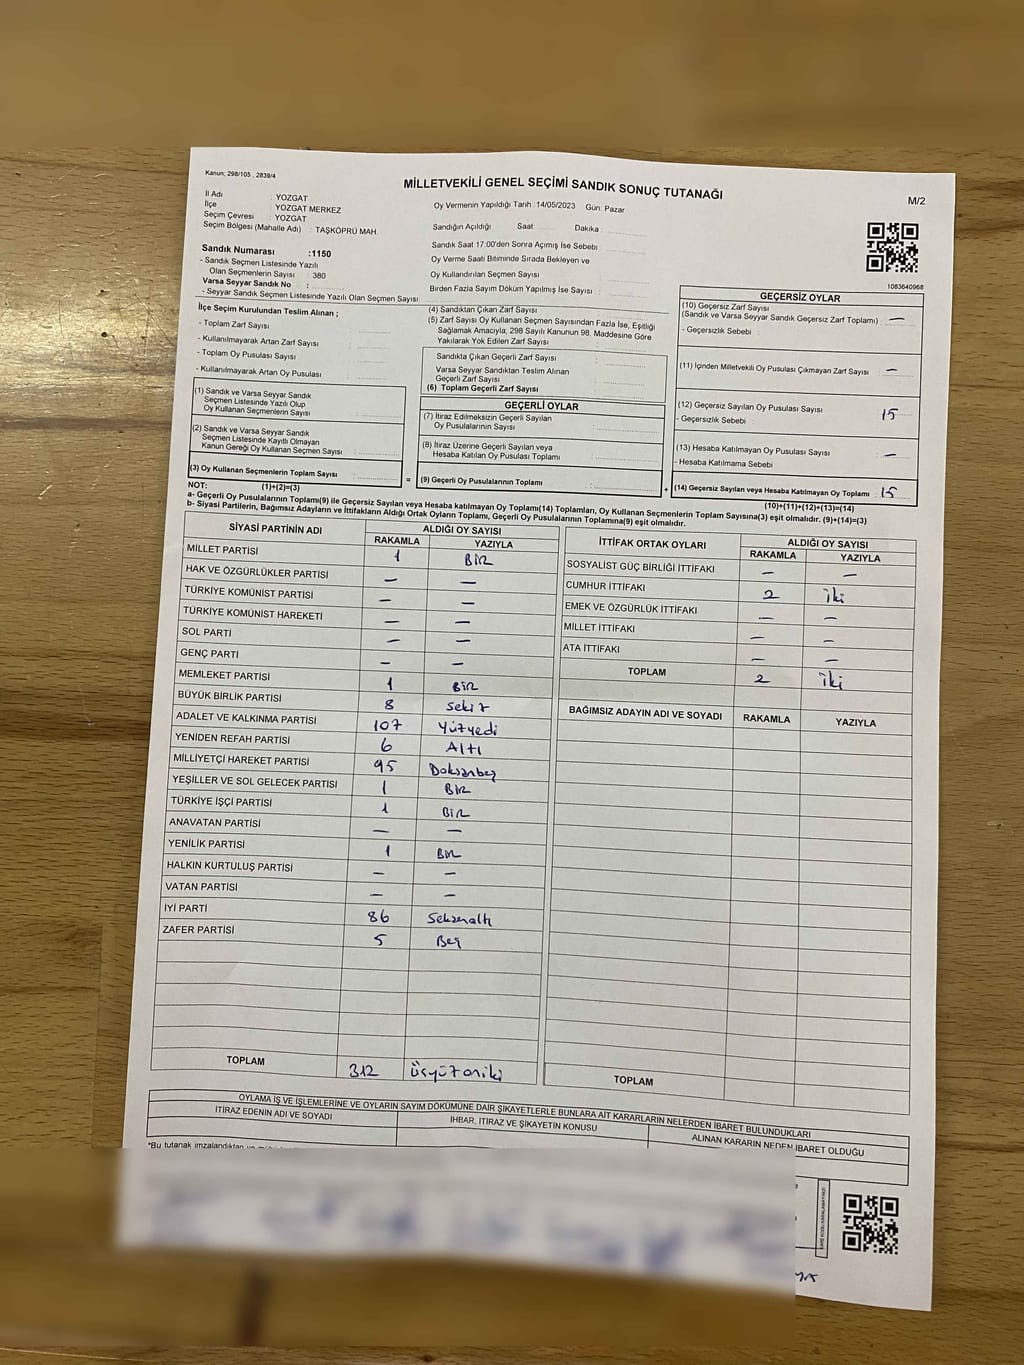 Kanun: 298/105 , 2839/4
MİLLETVEKİLİ GENEL SEÇİMİ SANDIK SONUÇ TUTANAĞI
M/2
İl Adı : YOZGAT
İlçe : YOZGAT MERKEZ
Seçim Çevresi : YOZGAT
Seçim Bölgesi (Mahalle Adı) : TAŞKÖPRÜ MAH.
Oy Vermenin Yapıldığı Tarih :14/05/2023 Gün: Pazar
Sandığın Açıldığı Saat Dakika :
Sandık Saat 17:00'den Sonra Açımış İse Sebebi
Oy Verme Saati Bitiminde Sırada Bekleyen ve
Oy Kullandırılan Seçmen Sayısı
Birden Fazla Sayım Döküm Yapılmış İse Sayısı :
1083640968
Sandık Numarası :1150
- Sandık Seçmen Listesinde Yazılı
Olan Seçmenlerin Sayısı : 380
Varsa Seyyar Sandık No :
- Seyyar Sandık Seçmen Listesinde Yazılı Olan Seçmen Sayısı:
İlçe Seçim Kurulundan Teslim Alınan ;
- Toplam Zarf Sayısı :
- Kullanılmayarak Artan Zarf Sayısı :
- Toplam Oy Pusulası Sayısı :
- Kullanılmayarak Artan Oy Pusulası :
(1) Sandık ve Varsa Seyyar Sandık
Seçmen Listesinde Yazılı Olup
Oy Kullanan Seçmenlerin Sayısı :
(2) Sandık ve Varsa Seyyar Sandık
Seçmen Listesinde Kayıtlı Olmayan
Kanun Gereği Oy Kullanan Seçmen Sayısı :
(3) Oy Kullanan Seçmenlerin Toplam Sayısı :
(4) Sandıktan Çıkan Zarf Sayısı :
(5) Zarf Sayısı Oy Kullanan Seçmen Sayısından Fazla İse, Eşitliği
Sağlamak Amacıyla, 298 Sayılı Kanunun 98. Maddesine Göre
Yakılarak Yok Edilen Zarf Sayısı :
Sandıkta Çıkan Geçerli Zarf Sayısı :
Varsa Seyyar Sandıktan Teslim Alınan
Geçerli Zarf Sayısı :
(6) Toplam Geçerli Zarf Sayısı :
GEÇERLİ OYLAR
(7) İtiraz Edilmeksizin Geçerli Sayılan
Oy Pusulalarının Sayısı :
(8) İtiraz Üzerine Geçerli Sayılan veya
Hesaba Katılan Oy Pusulası Toplamı :
= (9) Geçerli Oy Pusulalarının Toplamı :
GEÇERSİZ OYLAR
(10) Geçersiz Zarf Sayısı
(Sandık ve Varsa Seyyar Sandık Geçersiz Zarf Toplamı) : —
- Geçersizlik Sebebi :
(11) İçinden Milletvekili Oy Pusulası Çıkmayan Zarf Sayısı : —
(12) Geçersiz Sayılan Oy Pusulası Sayısı 15
- Geçersizlik Sebebi :
(13) Hesaba Katılmayan Oy Pusulası Sayısı : —
- Hesaba Katılmama Sebebi :
+ (14) Geçersiz Sayılan veya Hesaba Katılmayan Oy Toplamı : 15
NOT: (1)+(2)=(3) (10)+(11)+(12)+(13)=(14)
a- Geçerli Oy Pusulalarının Toplamı(9) ile Geçersiz Sayılan veya Hesaba katılmayan Oy Toplamı(14) Toplamları, Oy Kullanan Seçmenlerin Toplam Sayısına(3) eşit olmalıdır. (9)+(14)=(3)
b- Siyasi Partilerin, Bağımsız Adayların ve İttifakların Aldığı Ortak Oyların Toplamı, Geçerli Oy Pusulalarının Toplamına(9) eşit olmalıdır.
SİYASİ PARTİNİN ADI ALDIĞI OY SAYISI
RAKAMLA YAZIYLA
MİLLET PARTİSİ 1 BİR
HAK VE ÖZGÜRLÜKLER PARTİSİ — —
TÜRKİYE KOMÜNİST PARTİSİ — —
TÜRKİYE KOMÜNİST HAREKETİ — —
SOL PARTİ — —
GENÇ PARTİ — —
MEMLEKET PARTİSİ 1 BİR
BÜYÜK BİRLİK PARTİSİ 8 Sekiz
ADALET VE KALKINMA PARTİSİ 107 Yüzyedi
YENİDEN REFAH PARTİSİ 6 Altı
MİLLİYETÇİ HAREKET PARTİSİ 95 Doksanbeş
YEŞİLLER VE SOL GELECEK PARTİSİ 1 BİR
TÜRKİYE İŞÇİ PARTİSİ 1 BİR
ANAVATAN PARTİSİ — —
YENİLİK PARTİSİ 1 BİR
HALKIN KURTULUŞ PARTİSİ — —
VATAN PARTİSİ — —
İYİ PARTİ 86 Seksenaltı
ZAFER PARTİSİ 5 Beş
TOPLAM 312 Üçyüzoniki
İTTİFAK ORTAK OYLARI ALDIĞI OY SAYISI
RAKAMLA YAZIYLA
SOSYALİST GÜÇ BİRLİĞİ İTTİFAKI — —
CUMHUR İTTİFAKI 2 İki
EMEK VE ÖZGÜRLÜK İTTİFAKI — —
MİLLET İTTİFAKI — —
ATA İTTİFAKI — —
TOPLAM 2 İki
BAĞIMSIZ ADAYIN ADI VE SOYADI RAKAMLA YAZIYLA
TOPLAM
OYLAMA İŞ VE İŞLEMLERİNE VE OYLARIN SAYIM DÖKÜMÜNE DAİR ŞİKAYETLERLE BUNLARA AİT KARARLARIN NELERDEN İBARET BULUNDUKLARI
İTİRAZ EDENİN ADI VE SOYADI İHBAR, İTİRAZ VE ŞİKAYETİN KONUSU ALINAN KARARIN NEDEN İBARET OLDUĞU
*Bu tutanak imzalandıktan